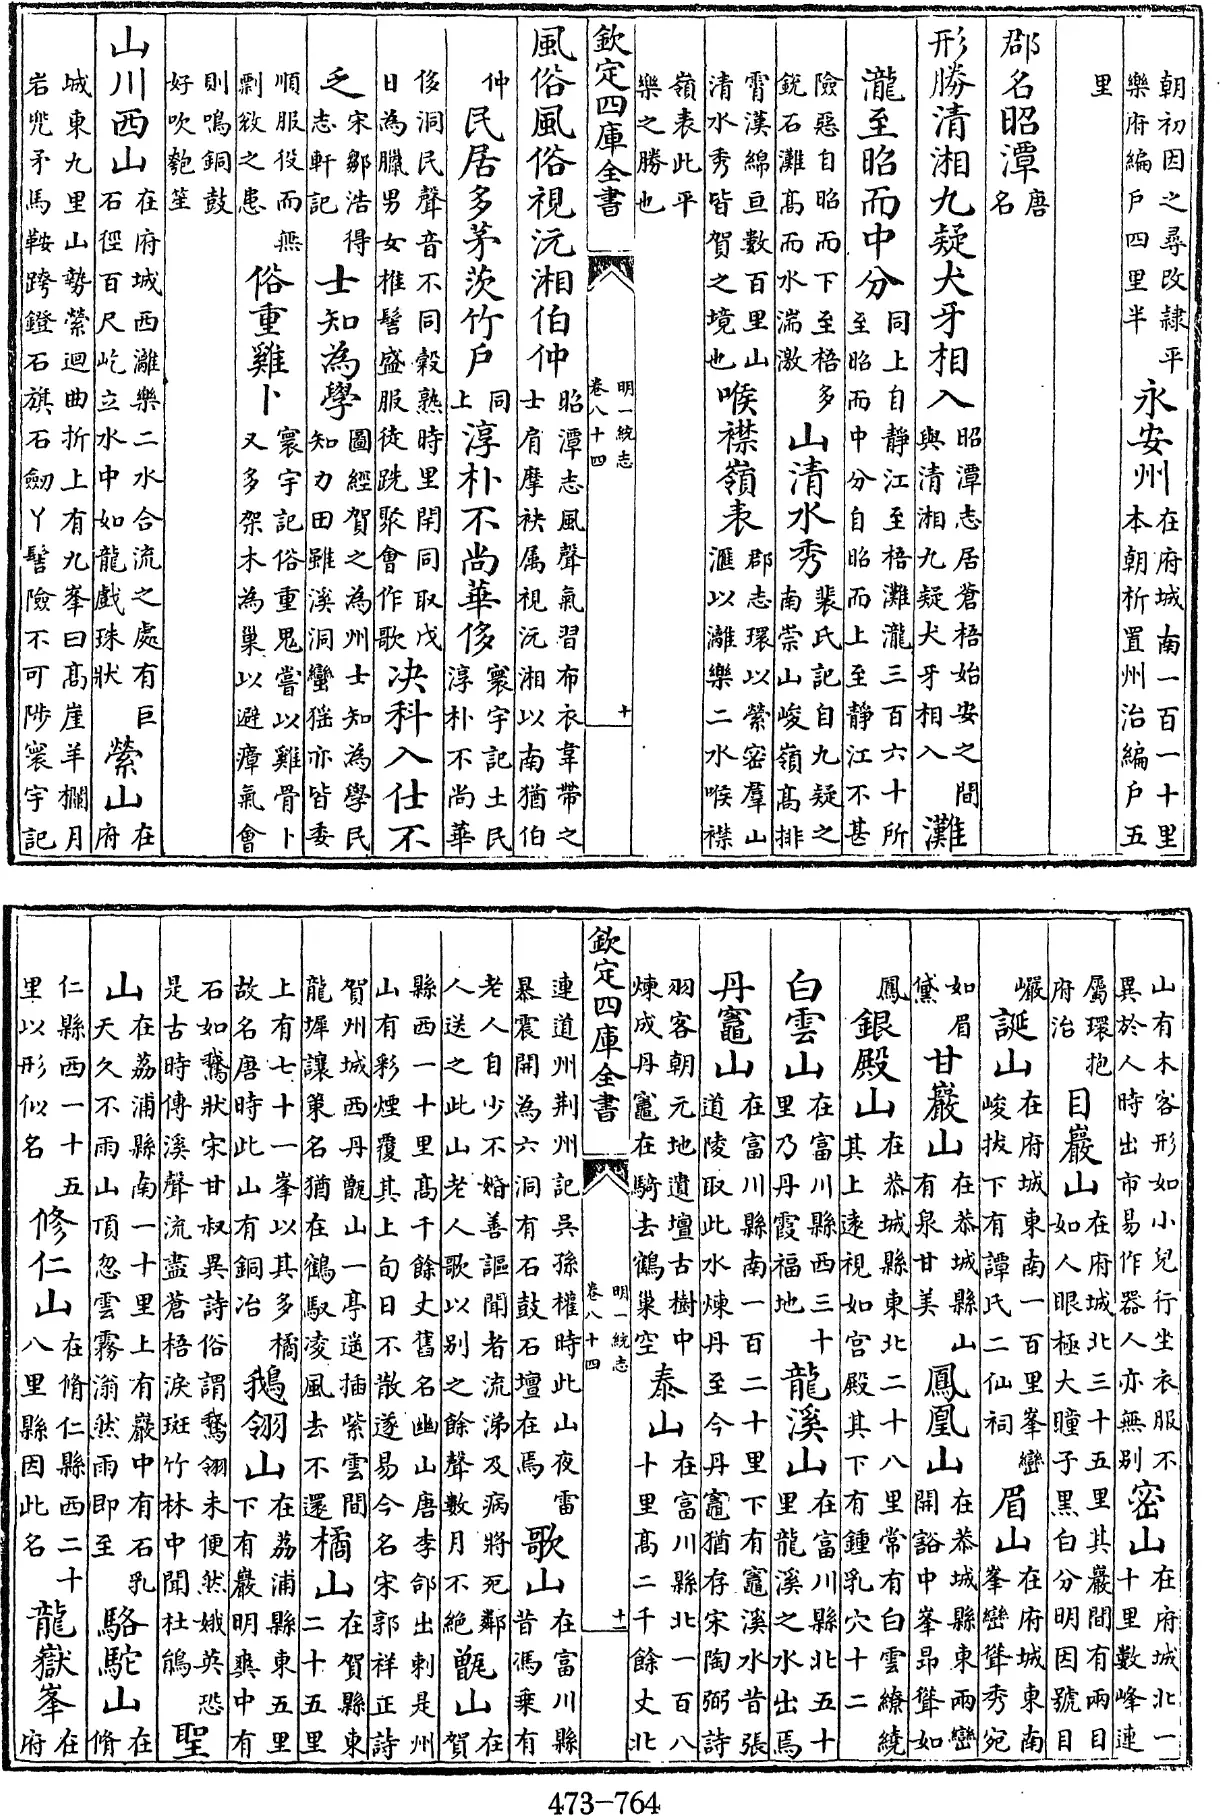 朝初因之尋改隷平樂府編戶四里半永安州在府城南一百一十里本朝析置州治編戶五
里
郡名昭潭唐名
形勝清湘九疑犬牙相入昭潭志居蒼梧始安之間與清湘九疑犬牙相入灘
瀧至昭而中分同上自靜江至梧灘瀧三百六十所至昭而中分自昭而上至靜江不甚
險惡自昭而下至梧多銳石灘髙而水湍激山清水秀裴氏記自九疑之南崇山峻嶺髙排
霄漢綿亘數百里山清水秀皆賀之境也喉襟嶺表郡志環以縈密羣山滙以灕樂二水喉襟
嶺表此平樂之勝也
欽定四庫全書 明一統志卷八十四 十
風俗風俗視沅湘伯仲昭潭志風聲氣習布衣韋帶之士肩摩袂属視沅湘以南猶伯
仲民居多茅茨竹戶同上淳朴不尚華侈寰宇記土民淳朴不尚華
侈洞民聲音不同穀熟時里閈同取戊日為臘男女椎髻盛服徒跣聚會作歌决科入仕不
乏宋鄒浩得志軒記士知為學圖經賀之為州士知為學民知力田雖溪洞蠻猺亦皆委
順服役而無剽敓之患俗重雞卜寰宇記俗重鬼嘗以雞骨卜又多架木為巢以避瘴氣會
則鳴銅鼓好吹匏笙
山川西山在府城西灕樂二水合流之處有巨石徑百尺屹立水中如龍戲珠狀縈山在府
城東九里山勢縈迴曲折上有九峯曰髙崖羊欄月岩兠矛馬鞍跨鐙石旗石劒丫髻險不可陟寰宇記
山有木客形如小兒行坐衣服不異於人時出市易作器人亦無别密山在府城北一十里數峰連
屬環抱府治目巖山在府城北三十五里其巖間有兩目如人眼極大瞳子黑白分明因號目
巖誕山在府城東南一百里峯巒峻拔下有譚氏二仙祠眉山在府城東南峯巒聳秀宛
如眉黛甘巖山在恭城縣山有泉甘美鳳凰山在恭城縣東兩巒開豁中峯昻聳如
鳳銀殿山在恭城縣東北二十八里常有白雲繚繞其上遠視如宮殿其下有鍾乳穴十二
白雲山在富川縣西三十里乃丹霞福地龍溪山在富川縣北五十里龍溪之水出焉
丹竈山在富川縣南一百二十里下有竈溪水昔張道陵取此水煉丹至今丹竈猶存宋陶弼詩
羽客朝元地遺壇古樹中煉成丹竈在騎去鶴巢空泰山在富川縣北一百八十里髙二千餘丈北
欽定四庫全書 明一統志卷八十四 十一
連道州荆州記吳孫權時此山夜雷暴震開為六洞有石鼓石壇在焉歌山在富川縣昔馮乗有
老人自少不婚善謳聞者流涕及病將死鄰人送之此山老人歌以别之餘聲數月不絶甑山在賀
縣西一十里髙千餘丈舊名幽山唐李郃出刺是州山有彩煙覆其上旬日不散遂易今名宋郭祥正詩
賀州城西丹甑山一亭遥插紫雲間龍墀讓第名猶在鶴馭凌風去不還橘山在賀縣東二十五里
上有七十一峯以其多橘故名唐時此山有銅冶鵝翎山在荔浦縣東五里下有巖明爽中有
石如鵞狀宋甘叔異詩俗謂鵞翎未便然娥英恐是古時傳溪聲流盡蒼梧淚斑竹林中聞杜鵑聖
山在荔浦縣南一十里上有巖中有石乳天久不雨山頂忽雲霧滃然雨即至駱駝山在脩
仁縣西一十五里以形似名修仁山在脩仁縣西二十八里縣因此名龍嶽峯在府
473-764